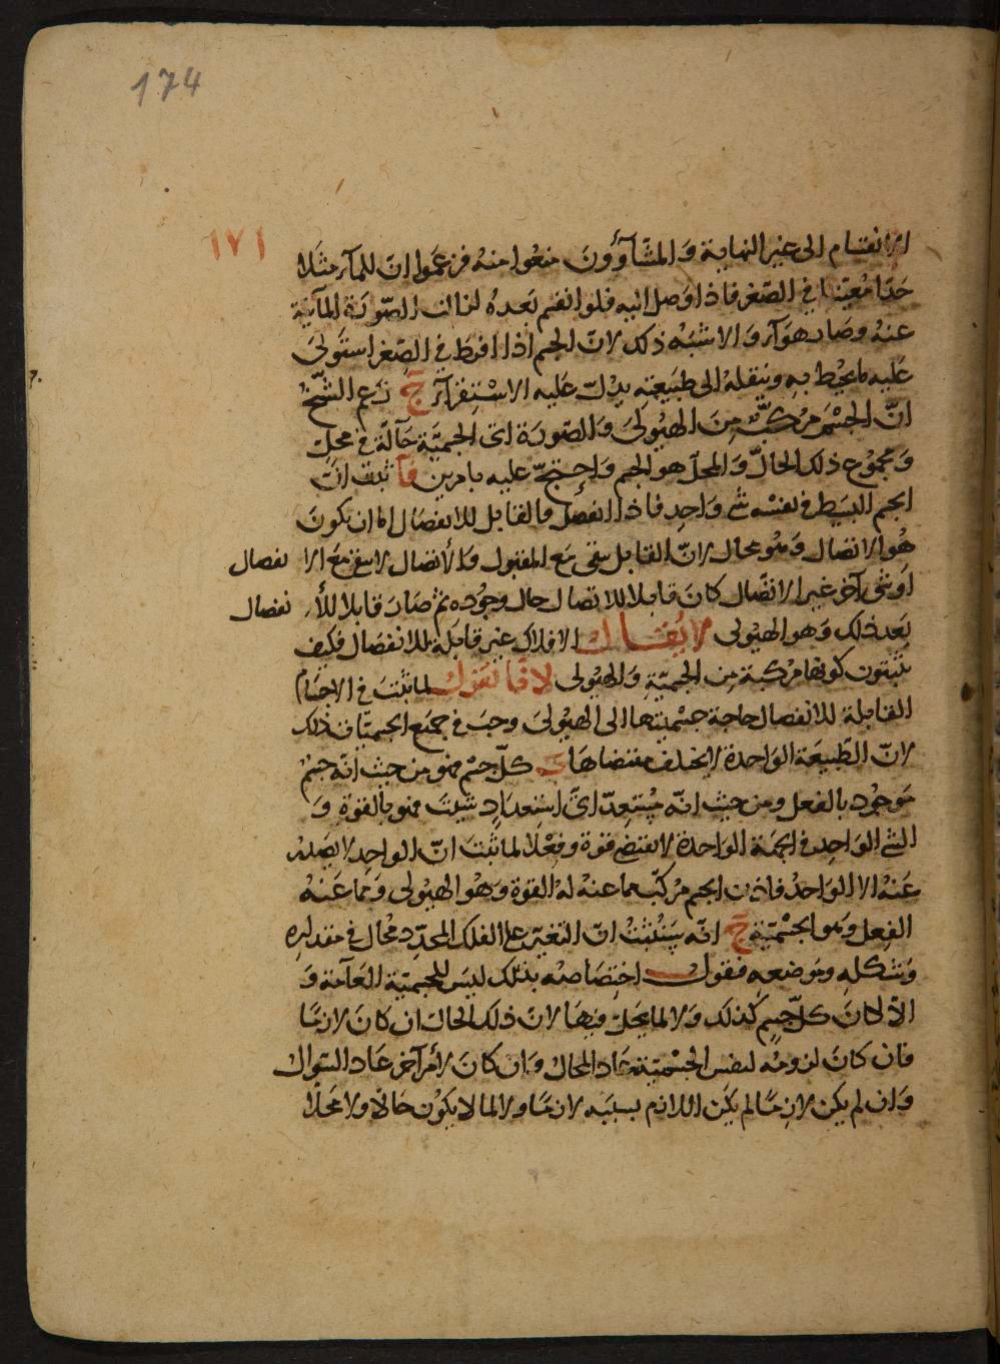 174
١٧١
الانقسام الى غير النهاية وَالمشّآؤونَ منعُوا منهُ فزعمَوا انّ للمآء مثَلا
حَدّا مُعيّنا في الصّغر فاذا وَصل اليه فلو انقسم بَعدهُ لزالت الصّورَة المآئية
عنهُ وصَار هوَآء وَالاشبَهْ ذلك لانّ الجسم اذا افرط في الصِغر استَولىَ
عَليه ما يحُيْط بِهِ وَينقلهُ الى طبيَعته يدْلّ عَليه الاسْتِقرآء جَ زعم الشّيخُ
انّ الجسْمَ مرُكبٌّ مِنَ الهيُولىَ وَالصّورَة اىَ الجسميّة حَآلّة في محلٍ
وَمجمُوع ذلك الحالّ وَالمحلّ هو الجسم وَاحتجّ عليه بامرين آ ثبت انّ
الجسم البسَيط في نفسْه شئ وَاحِد فاذا انفصَل فالقابل للانفصَال اما ان يكونَ
هُو الاتصال وَهُو محال لانّ القابل يبقى مَع المقبول وَالاتصال لا يبقى مَع الانفصال
اوَ شئ آخر غير الاتصّال كانَ قابلا للاتصال حال وجُوده ثم صَارَ قابلا للانفصال
بَعد ذلك وَهو الهيولى لا يقُال الافلاك غير قابَلة للانفصَال فكيف
يثبتون كونها مرُكبة مِن الجسميّةِ وَالهيُولى لانّا نقول لما ثبتَ في الاجسَام
القابلة للانفصال حاجة جسْميتها الى الهيُولىَ وجبَ في جميَع الجسميّات ذلك
لانّ الطّبيَعة الوَاحدة لا يختلف مقتضاها بَ كلّ جسْم فهو من حيث انّه جسْم
مَوجُود بالفعل ومن حيث انّه مُسْتعِدّ اىّ استعدَادٍ شئتَ فهو بالقوّة وَ
الشئ الوَاحِد في الجهَة الوَاحدة لا يقتضى قوّة وفعْلا لما ثبتَ انّ الوَاحِد لا يصَدر
عَنهُ الا الوَاحدُ فاذن الجسم مرُكبّ مما عنهُ لهُ القوّة وَهوُ الهيُولى وَمما عَنهُ
الفِعل وَهو الجسْميّة جَ انّه سَيثبتُ انّ التغيّر على الفلك المحدّد مُحال في مقدارِه
وشكلهِ وَموضعهِ فنقول اختصَاصهُ بذلك ليسَ للجسميّة العَآمّة وَ
الاّ لكانَ كلّ جسِم كذلَك وَلا لما يَحُلّ فيهَا لانّ ذلك الحالّ ان كانَ لازمًا
فان كانَ لزومُه لنفس الجسْميّة عَاد المحال وَان كانَ لأمر آخر عَاد السّؤال
وَان لم يكن لازِمًا لم يكَن اللازم بسببَه لازمًا ولا لما لا يكوُن حَالّا ولا مَحلّا